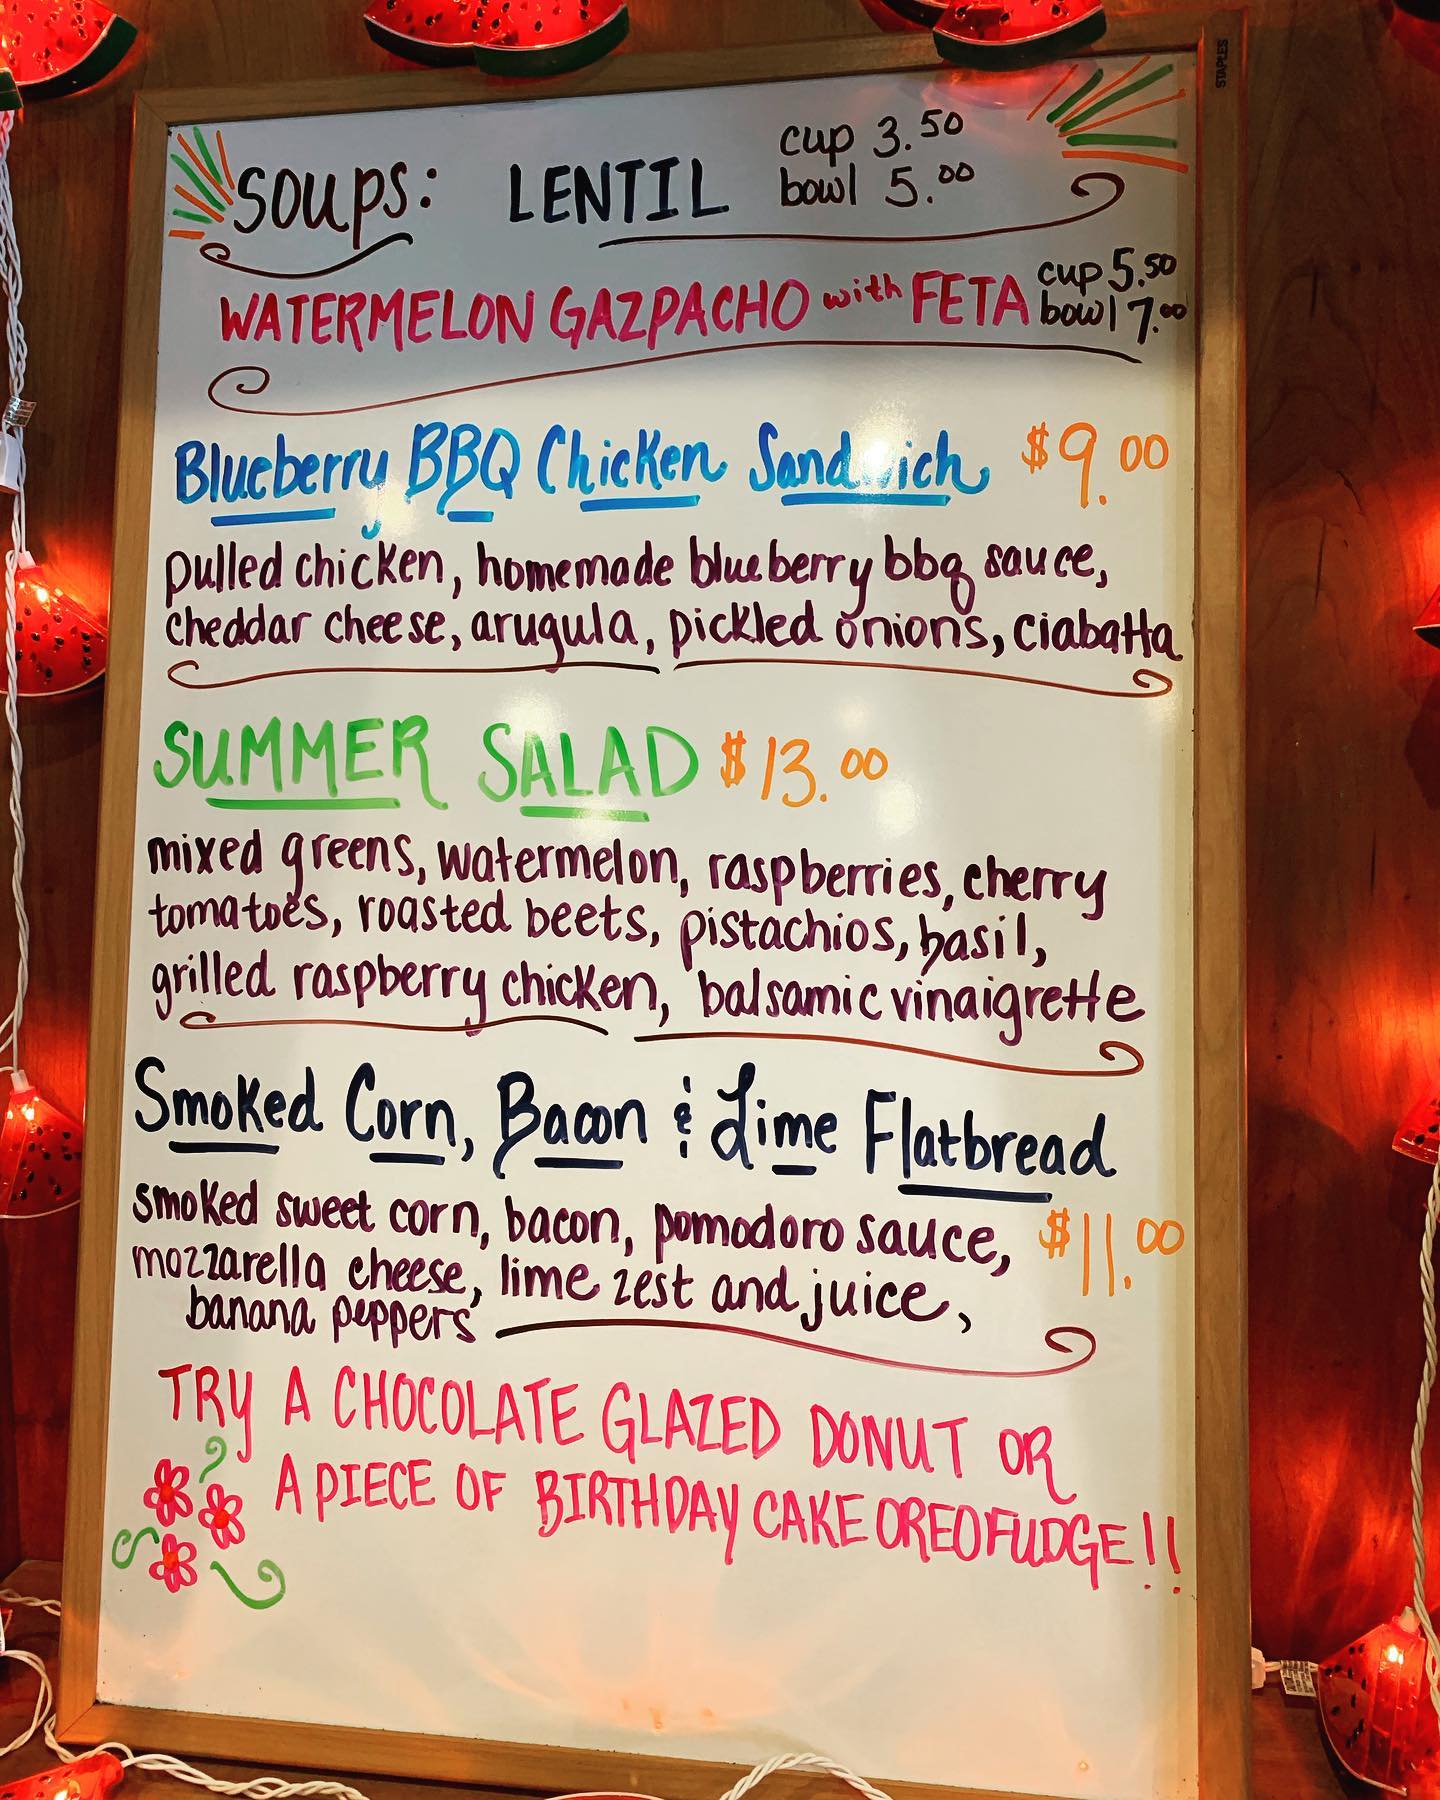 STAPLES
SOUPS: LENTIL cup 3.50
bowl 5.00
WATERMELON GAZPACHO with FETA cup 5.50
bowl 7.00
Blueberry BBQ Chicken Sandwich $9.00
pulled chicken, homemade blueberry bbq sauce,
cheddar cheese, arugula, pickled onions, ciabatta
SUMMER SALAD $13.00
mixed greens, watermelon, raspberries, cherry
tomatoes, roasted beets, pistachios, basil,
grilled raspberry chicken, balsamic vinaigrette
Smoked Corn, Bacon & Lime Flatbread
smoked sweet corn, bacon, pomodoro sauce, $11.00
mozzarella cheese, lime zest and juice,
banana peppers
TRY A CHOCOLATE GLAZED DONUT OR
A PIECE OF BIRTHDAY CAKE OREO FUDGE!!